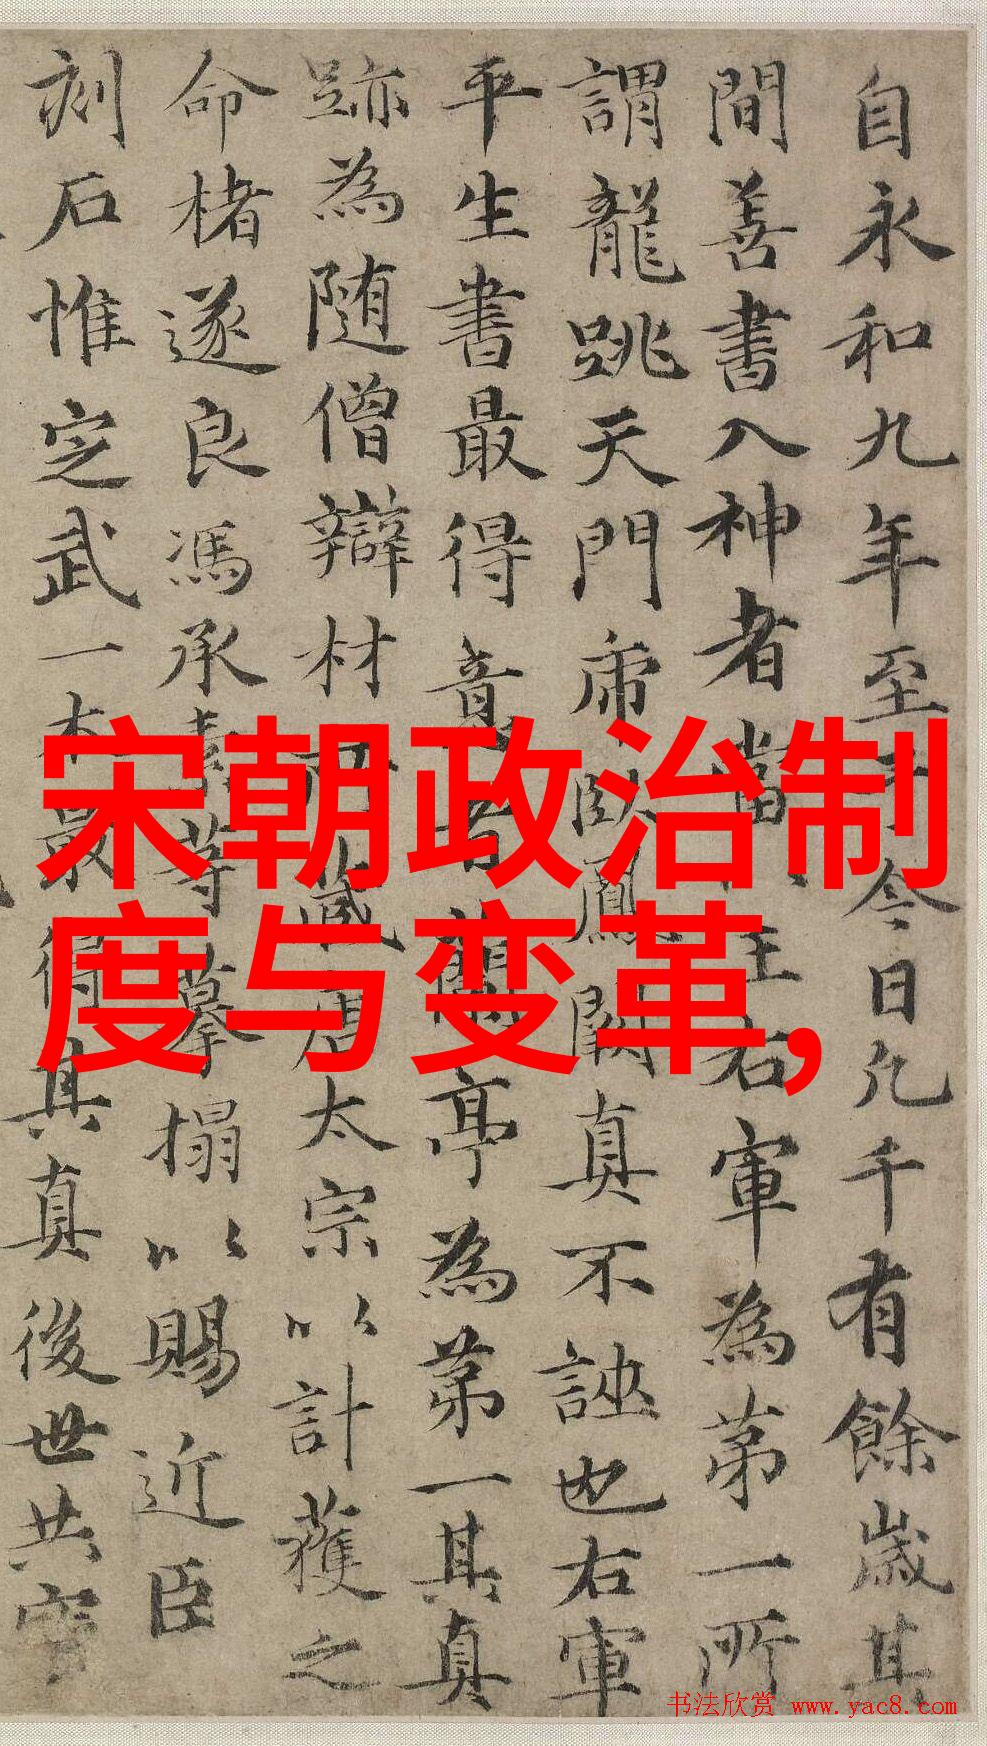 自永和九年至于今日凡千有餘歲其
間善書入神者當以王右軍為第一所
謂龍跳天門虎臥鳳閣真不誣也右軍
平生書最得意者蘭亭為第一其真
跡為隨僧辯材所藏唐太宗以計獲之
命楮遂良馮承素等摹搨以賜近臣
刻石惟定武一本最得其真後世共寶
宋朝政治制
度与变革,
书法欣赏 www.yac8.com